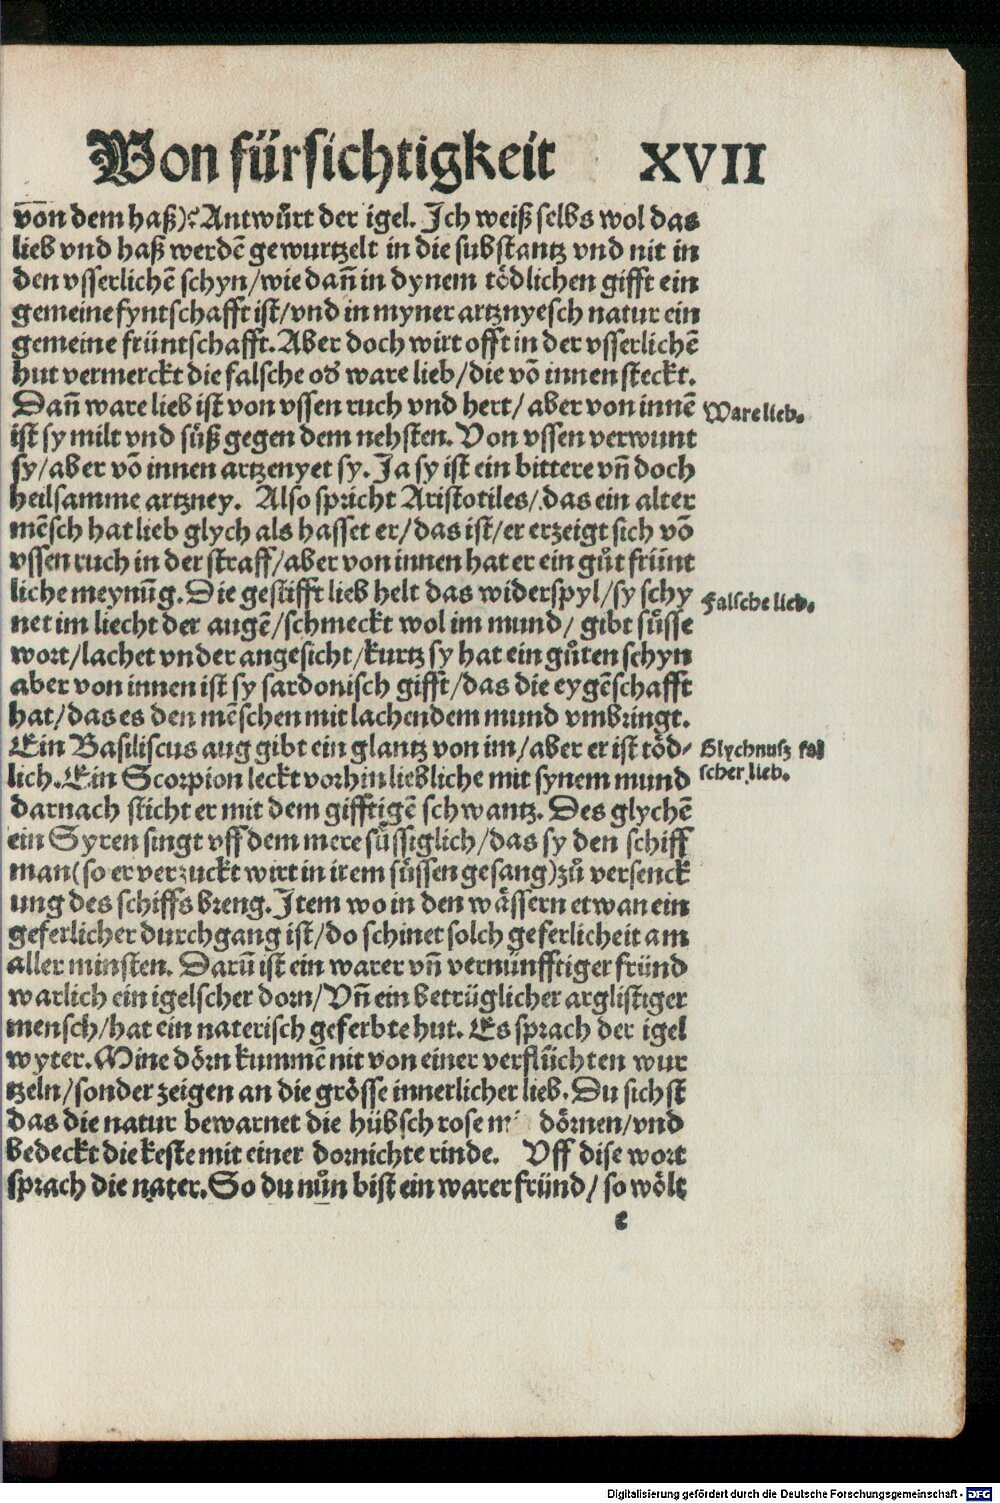 Von fürsichtigkeit XVII
von dem haß)? Antwürt der igel. Ich weiß selbs wol das
lieb vnd haß werdē gewurtzelt in die substantz vnd nit in
den vsserlichē schyn/wie dañ in dynem tödlichen gifft ein
gemeine fyntschafft ist/vnd in myner artznyesch natur ein
gemeine früntschafft. Aber doch wirt offt in der vsserlichē
hut vermerckt die falsche od ware lieb/die vō innen steckt.
Dañ ware lieb ist von vssen ruch vnd hert/ aber von innē
Ware lieb.
ist sy milt vnd süß gegen dem nehsten. Von vssen verwunt
sy/aber vō innen artzenyet sy. Ja sy ist ein bittere vñ doch
heilsamme artzney. Also spricht Aristotiles/das ein alter
mēsch hat lieb glych als hasset er/das ist/er erzeigt sich vō
vssen ruch in der straff/aber von innen hat er ein gůt früñt
liche meynūg. Die gestifft lieb helt das widerspyl/sy schy
Falsche lieb.
net im liecht der augē/schmeckt wol im mund/ gibt süsse
wort/lachet vnder angesicht/kurtz sy hat ein gůten schyn
aber von innen ist sy sardonisch gifft/das die eygēschafft
hat/das es den mēschen mit lachendem mund vmbringt.
Ein Basiliscus aug gibt ein glantz von im/aber er ist töd-
Glychnusz fal
lich. Ein Scorpion leckt vorhin liebliche mit synem mund
scher lieb.
darnach sticht er mit dem gifftigē schwantz. Des glychē
ein Syren singt vff dem mere süssiglich/das sy den schiff
man(so er verzuckt wirt in irem süssen gesang)zů versenck
ung des schiffs breng. Item wo in den wässern etwan ein
geferlicher durchgang ist/do schinet solch geferlicheit am
aller minsten. Darū ist ein warer vñ vernünfftiger fründ
warlich ein igelscher dorn/Vñ ein betrüglicher arglistiger
mensch/hat ein naterisch geferbte hut. Es sprach der igel
wyter. Mine dörn kummē nit von einer verflůchten wur
tzeln/sonder zeigen an die grösse innerlicher lieb. Du sichst
das die natur bewarnet die hübsch rose mi dörnen/vnd
bedeckt die keste mit einer dornichte rinde. Vff dise wort
sprach die nater. So du nůn bist ein warer fründ/ so wölt
e
Digitalisierung gefördert durch die Deutsche Forschungsgemeinschaft - DFG